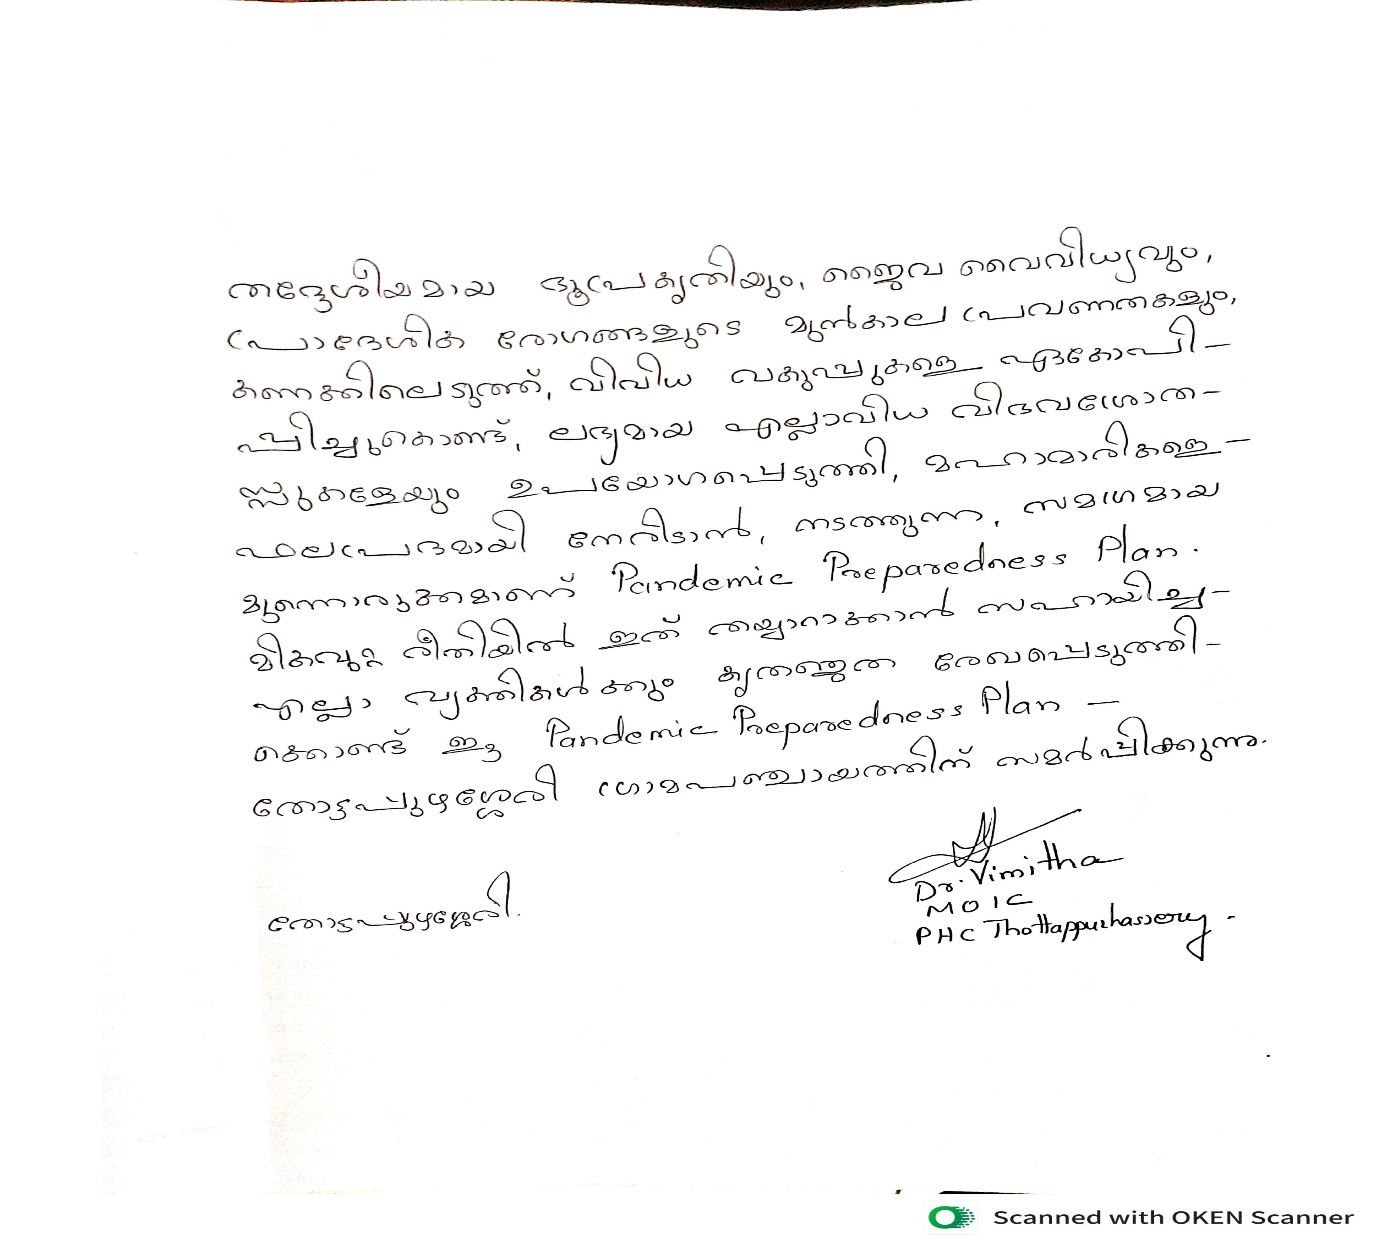 തദ്ദേശീയമായ ഭൂപ്രകൃതിയും, ജൈവ വൈവിധ്യവും,
പ്രാദേശിക രോഗങ്ങളുടെ മുൻകാല പ്രവണതകളും,
കണക്കിലെടുത്ത്, വിവിധ വകുപ്പുകളെ ഏകോപി-
പ്പിച്ചുകൊണ്ട്, ലഭ്യമായ എല്ലാവിധ വിഭവശ്രോത-
സ്സുകളേയും ഉപയോഗപ്പെടുത്തി, മഹാമാരികളെ -
ഫലപ്രദമായി നേരിടാൻ, നടത്തുന്ന, സമഗ്രമായ
മുന്നൊരുക്കമാണ് Pandemic Preparedness Plan.
മികവുറ്റ രീതിയിൽ ഇത് തയ്യാറാക്കാൻ സഹായിച്ച -
എല്ലാ വ്യക്തികൾക്കും കൃതജ്ഞത രേഖപ്പെടുത്തി -
ക്കൊണ്ട് ഈ Pandemic Preparedness Plan -
തോട്ടപ്പുഴശ്ശേരി ഗ്രാമപഞ്ചായത്തിന് സമർപ്പിക്കുന്നു.
Dr. Vimitha
MOIC
തോട്ടപ്പുഴശ്ശേരി.
PHC Thottappuzhassery.
Scanned with OKEN Scanner